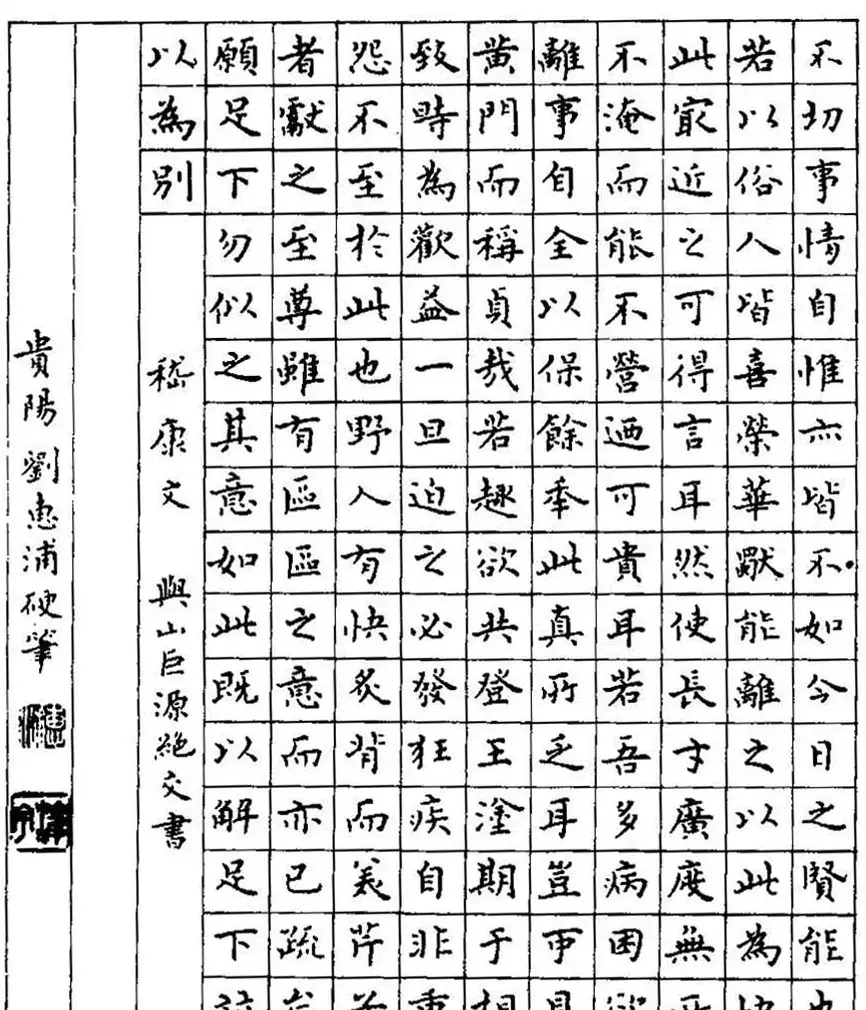 不切事情自惟亦皆不如今日之賢能也
若以俗人皆喜榮華獸能離之以此為快
此最近之可得言耳然使長才廣度無所
不淹而能不營迺可貴耳若吾多病困欲
離事自全以保餘年此真所乏耳豈可見
黃門而稱貞哉若趣欲共登王塗期于相
致時為歡益一旦迫之必發狂疾自非重
怨不至於此也野人有快炙背而美芹
者獻之至尊雖有區區之意而亦已疏
願足下勿似之其意如此既以解足下
以為別
嵇康文 與山巨源絕交書
貴陽劉惠浦硬筆